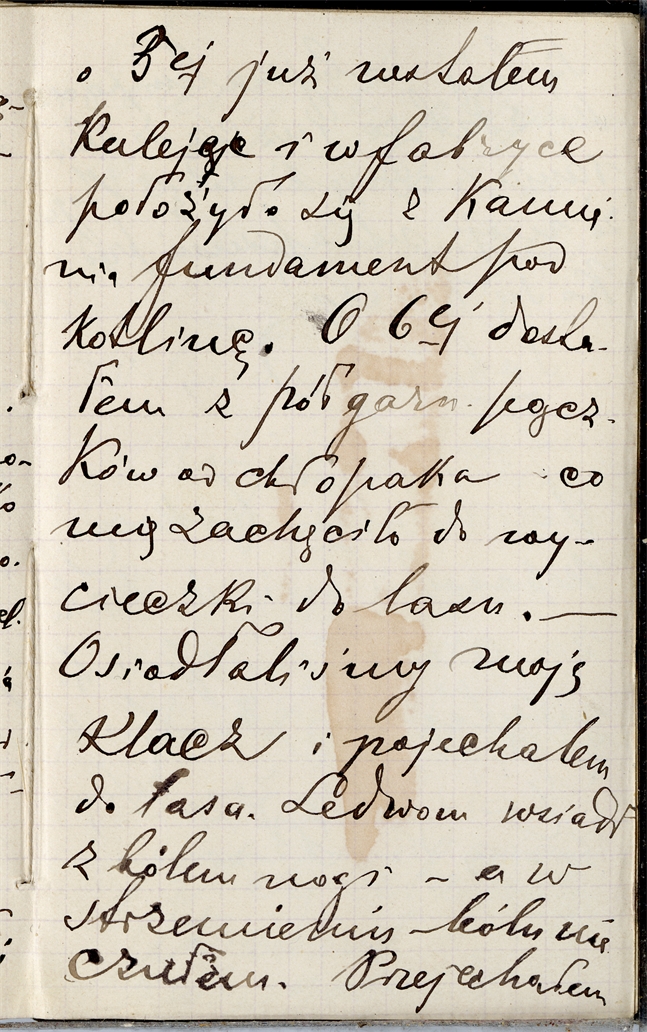 o 3ej już wstałem
Kuleję i w fabryce
położyło się z Kamie
nia fundament pod
Kotlinę. O 6ej dosta-
łem z półgarn. pącz.
Ków od chłopaka co
mię zachęciło do wy-
cieczki do lasu. —
Osiodłaliśmy moję
Klacz i pojechałem
do lasa. Ledwom wsiadł
z bólem nogi - a w
strzemieniu bólu nie
czułem. Przejechałem